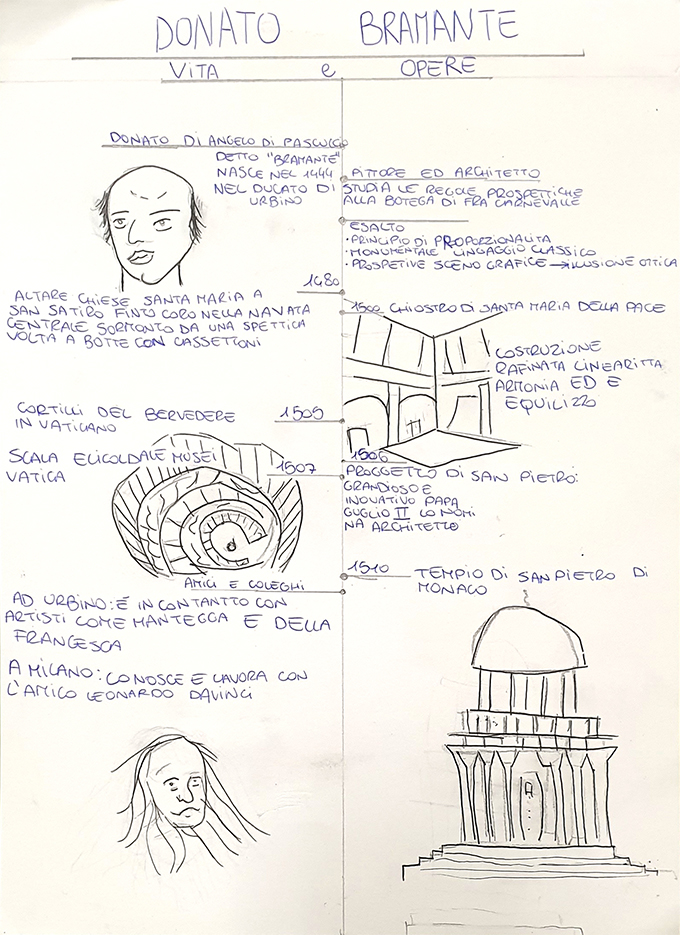 DONATO BRAMANTE
VITA e OPERE
DONATO DI ANGELO DI PASCUCCIO
DETTO "BRAMANTE"
NASCE NEL 1444
NEL DUCATO DI
URBINO
PITTORE ED ARCHITETTO
STUDIA LE REGOLE PROSPETTICHE
ALLA BOTEGA DI FRA CARNEVALLE
ESALTO
• PRINCIPIO DI PROPORZIONALITA
• MONUMENTALE LINGAGGIO CLASSICO
• PROSPETIVE SCENO GRAFICE → ILUSIONE OTTICA
1480
ALTARE CHIESE SANTA MARIA A
SAN SATIRO FINTO CORO NELLA NAVATA
CENTRALE SORMONTO DA UNA SPETTICA
VOLTA A BOTTE CON CASSETTONI
1500 CHIOSTRO DI SANTA MARIA DELLA PACE
COSTRUZIONE
RAFINATA LINEARITTA
ARMONIA ED E
EQUILIZRO
1505
CORTILLI DEL BERVEDERE
IN VATICANO
1506
PROGGETTO DI SAN PIETRO:
GRANDIOSO E
INOVATIVO PAPA
GUGLIO II LO NOMI
NA ARCHITETTO
1507
SCALA ELICOLDALE MUSEI
VATICA
1510
TEMPIO DI SAN PIETRO DI
MONACO
AMICI E COLEGHI
AD URBINO: É IN CONTANTTO CON
ARTISTI COME MANTEGGA E DELLA
FRANCESCA
A MILANO: CONOSCE E LAVORA CON
L'AMICO LEONARDO DAVINCI